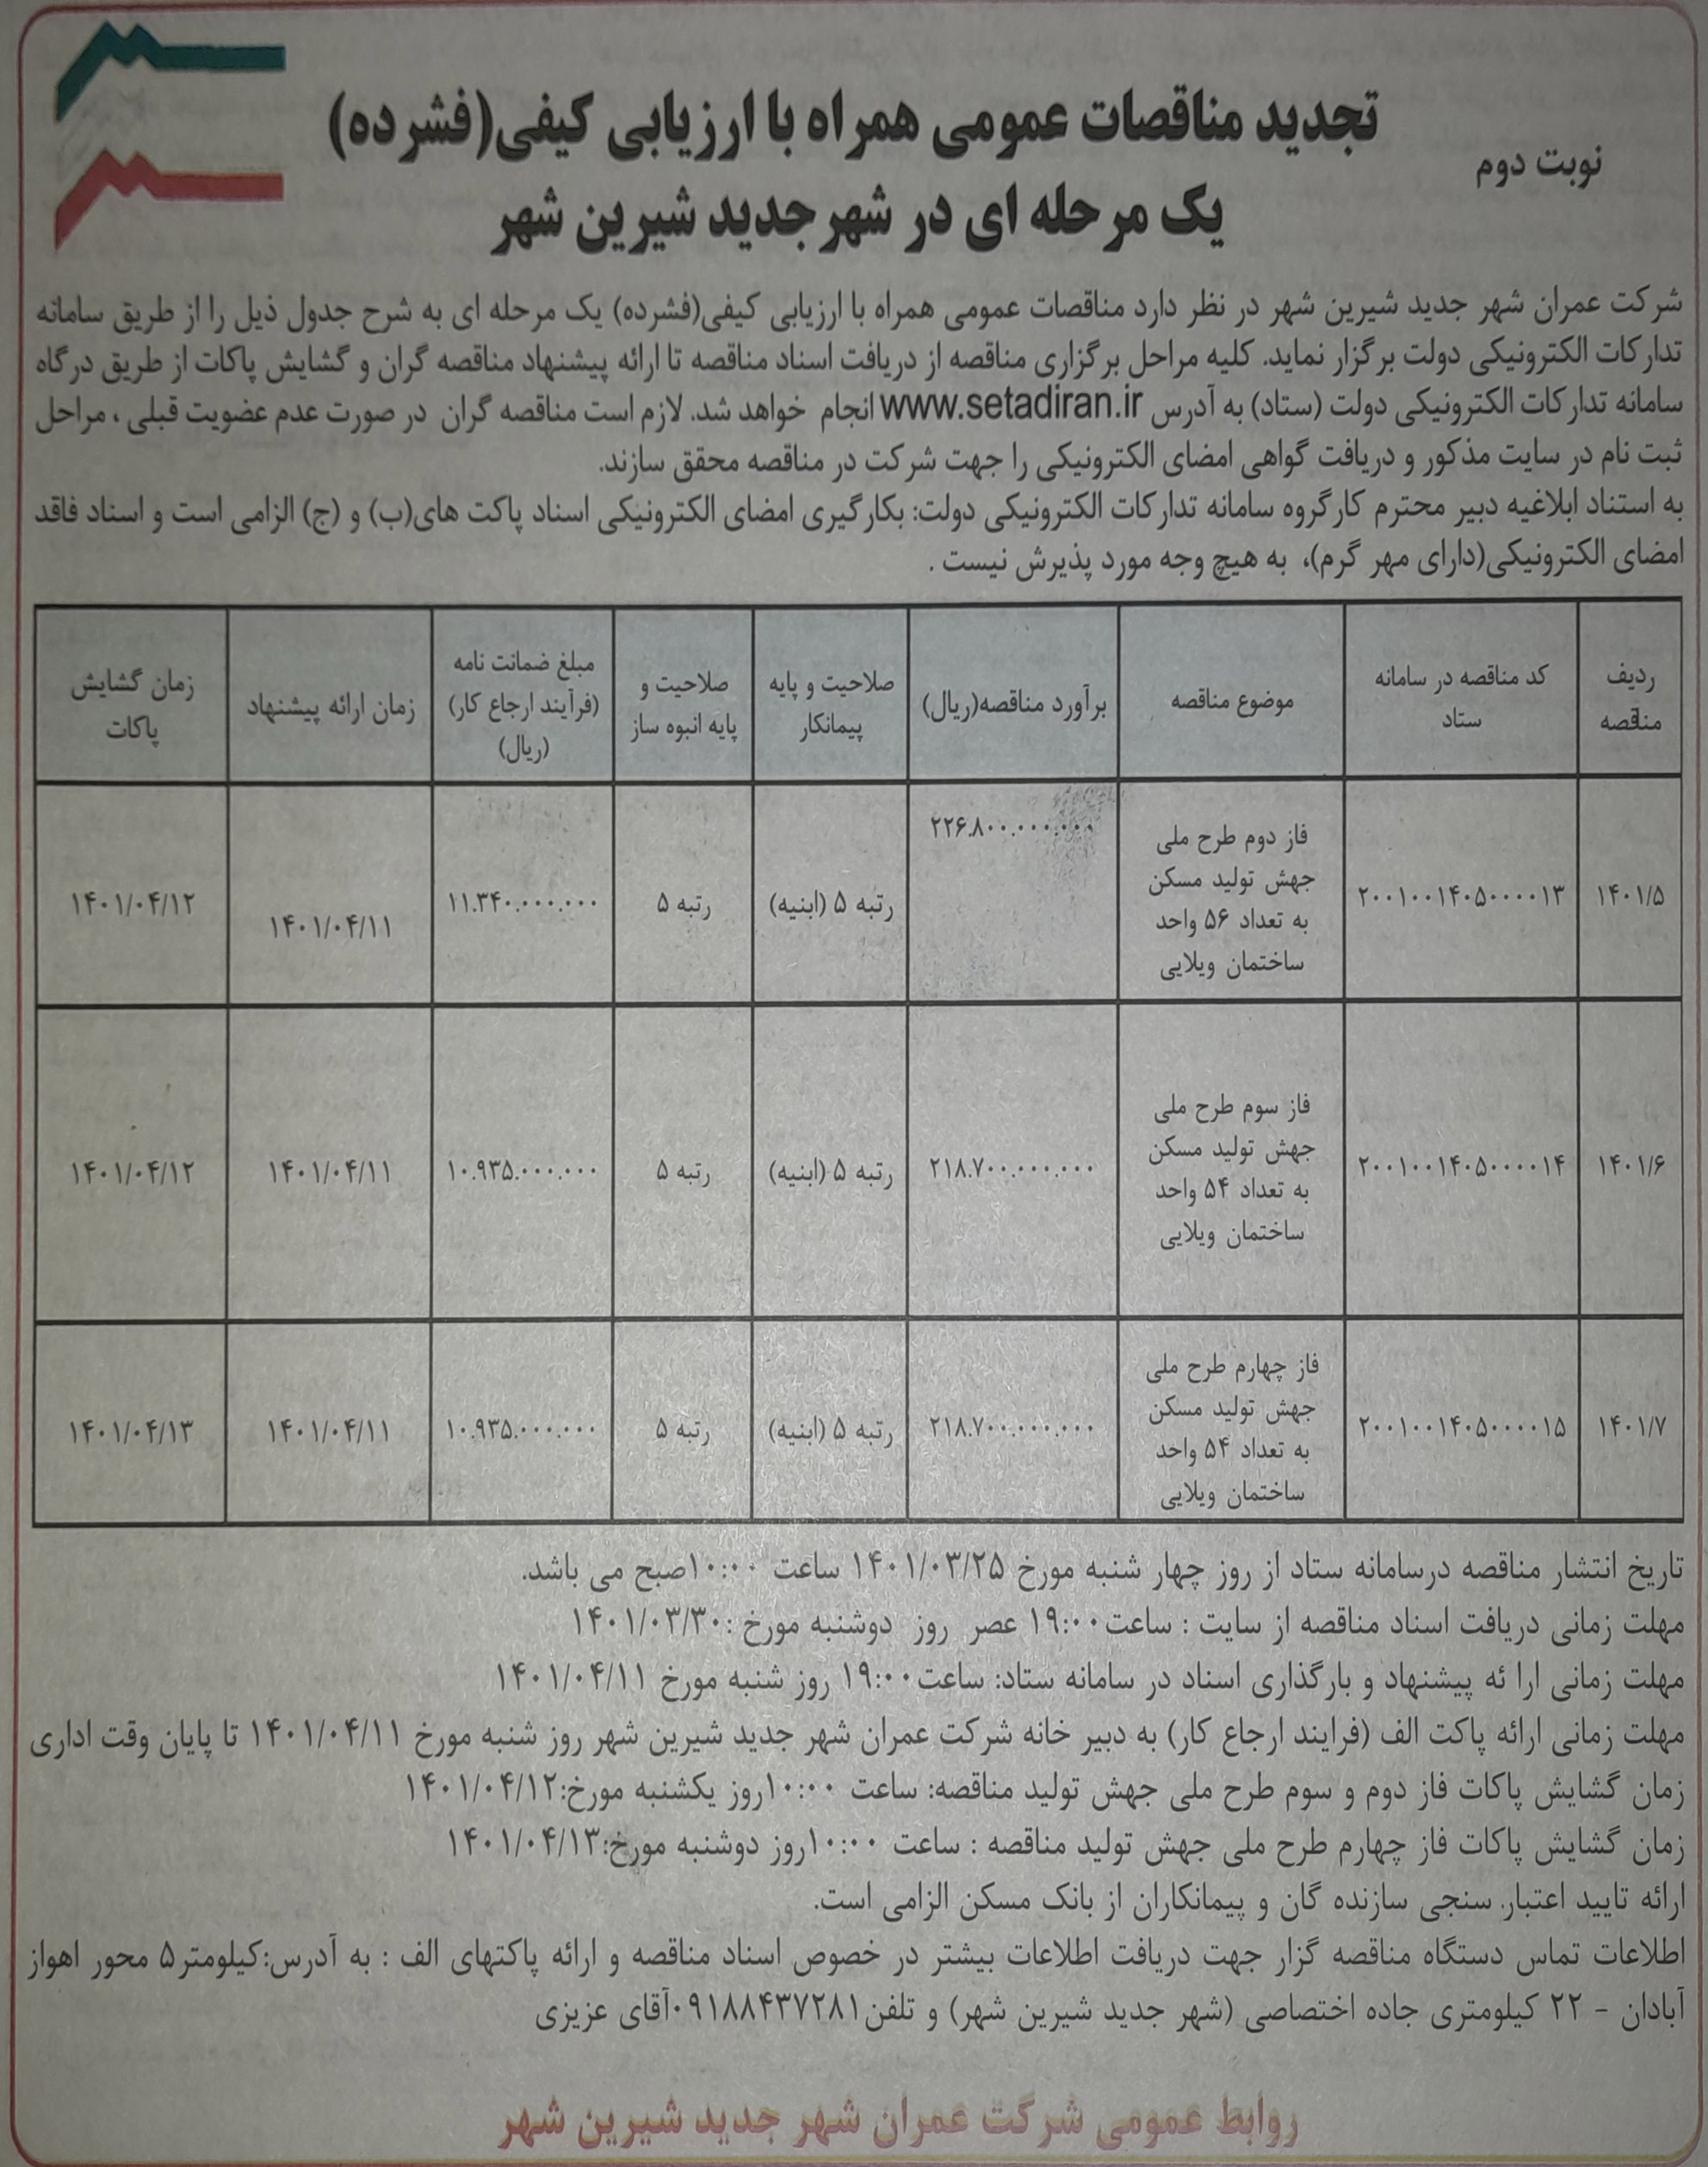 نوبت دوم
تجدید مناقصات عمومی همراه با ارزیابی کیفی(فشرده)
یک مرحله ای در شهر جدید شیرین شهر
شرکت عمران شهر جدید شیرین شهر در نظر دارد مناقصات عمومی همراه با ارزیابی کیفی(فشرده) یک مرحله ای به شرح جدول ذیل را از طریق سامانه
تدارکات الکترونیکی دولت برگزار نماید. کلیه مراحل برگزاری مناقصه از دریافت اسناد مناقصه تا ارائه پیشنهاد مناقصه گران و گشایش پاکات از طریق درگاه
سامانه تدارکات الکترونیکی دولت (ستاد) به آدرس www.setadiran.ir انجام خواهد شد. لازم است مناقصه گران در صورت عدم عضویت قبلی ، مراحل
ثبت نام در سایت مذکور و دریافت گواهی امضای الکترونیکی را جهت شرکت در مناقصه محقق سازند.
به استناد ابلاغیه دبیر محترم کارگروه سامانه تدارکات الکترونیکی دولت: بکارگیری امضای الکترونیکی اسناد پاکت های(ب) و (ج) الزامی است و اسناد فاقد
امضای الکترونیکی(دارای مهر گرم)، به هیچ وجه مورد پذیرش نیست .
ردیف مناقصه
کد مناقصه در سامانه ستاد
موضوع مناقصه
برآورد مناقصه(ریال)
صلاحیت و پایه پیمانکار
صلاحیت و پایه انبوه ساز
مبلغ ضمانت نامه (فرآیند ارجاع کار) (ریال)
زمان ارائه پیشنهاد
زمان گشایش پاکات
۱۴۰۱/۵
۲۰۰۱۰۰۱۴۰۵۰۰۰۰۱۳
فاز دوم طرح ملی
جهش تولید مسکن
به تعداد ۵۶ واحد
ساختمان ویلایی
۲۲۶.۸۰۰.۰۰۰.۰۰۰
رتبه ۵ (ابنیه)
رتبه ۵
۱۱.۳۴۰.۰۰۰.۰۰۰
۱۴۰۱/۰۴/۱۱
۱۴۰۱/۰۴/۱۲
۱۴۰۱/۶
۲۰۰۱۰۰۱۴۰۵۰۰۰۰۱۴
فاز سوم طرح ملی
جهش تولید مسکن
به تعداد ۵۴ واحد
ساختمان ویلایی
۲۱۸.۷۰۰.۰۰۰.۰۰۰
رتبه ۵ (ابنیه)
رتبه ۵
۱۰.۹۳۵.۰۰۰.۰۰۰
۱۴۰۱/۰۴/۱۱
۱۴۰۱/۰۴/۱۲
۱۴۰۱/۷
۲۰۰۱۰۰۱۴۰۵۰۰۰۰۱۵
فاز چهارم طرح ملی
جهش تولید مسکن
به تعداد ۵۴ واحد
ساختمان ویلایی
۲۱۸.۷۰۰.۰۰۰.۰۰۰
رتبه ۵ (ابنیه)
رتبه ۵
۱۰.۹۳۵.۰۰۰.۰۰۰
۱۴۰۱/۰۴/۱۱
۱۴۰۱/۰۴/۱۳
تاریخ انتشار مناقصه درسامانه ستاد از روز چهار شنبه مورخ ۱۴۰۱/۰۳/۲۵ ساعت ۱۰:۰۰صبح می باشد.
مهلت زمانی دریافت اسناد مناقصه از سایت : ساعت۱۹:۰۰ عصر روز دوشنبه مورخ :۱۴۰۱/۰۳/۳۰
مهلت زمانی ارا ئه پیشنهاد و بارگذاری اسناد در سامانه ستاد: ساعت۱۹:۰۰ روز شنبه مورخ ۱۴۰۱/۰۴/۱۱
مهلت زمانی ارائه پاکت الف (فرایند ارجاع کار) به دبیر خانه شرکت عمران شهر جدید شیرین شهر روز شنبه مورخ ۱۴۰۱/۰۴/۱۱ تا پایان وقت اداری
زمان گشایش پاکات فاز دوم و سوم طرح ملی جهش تولید مناقصه: ساعت ۱۰:۰۰روز یکشنبه مورخ:۱۴۰۱/۰۴/۱۲
زمان گشایش پاکات فاز چهارم طرح ملی جهش تولید مناقصه : ساعت ۱۰:۰۰روز دوشنبه مورخ:۱۴۰۱/۰۴/۱۳
ارائه تایید اعتبار. سنجی سازنده گان و پیمانکاران از بانک مسکن الزامی است.
اطلاعات تماس دستگاه مناقصه گزار جهت دریافت اطلاعات بیشتر در خصوص اسناد مناقصه و ارائه پاکتهای الف : به آدرس:کیلومتر۵ محور اهواز
آبادان - ۲۲ کیلومتری جاده اختصاصی (شهر جدید شیرین شهر) و تلفن۰۹۱۸۸۴۳۷۲۸۱آقای عزیزی
روابط عمومی شرکت عمران شهر جدید شیرین شهر